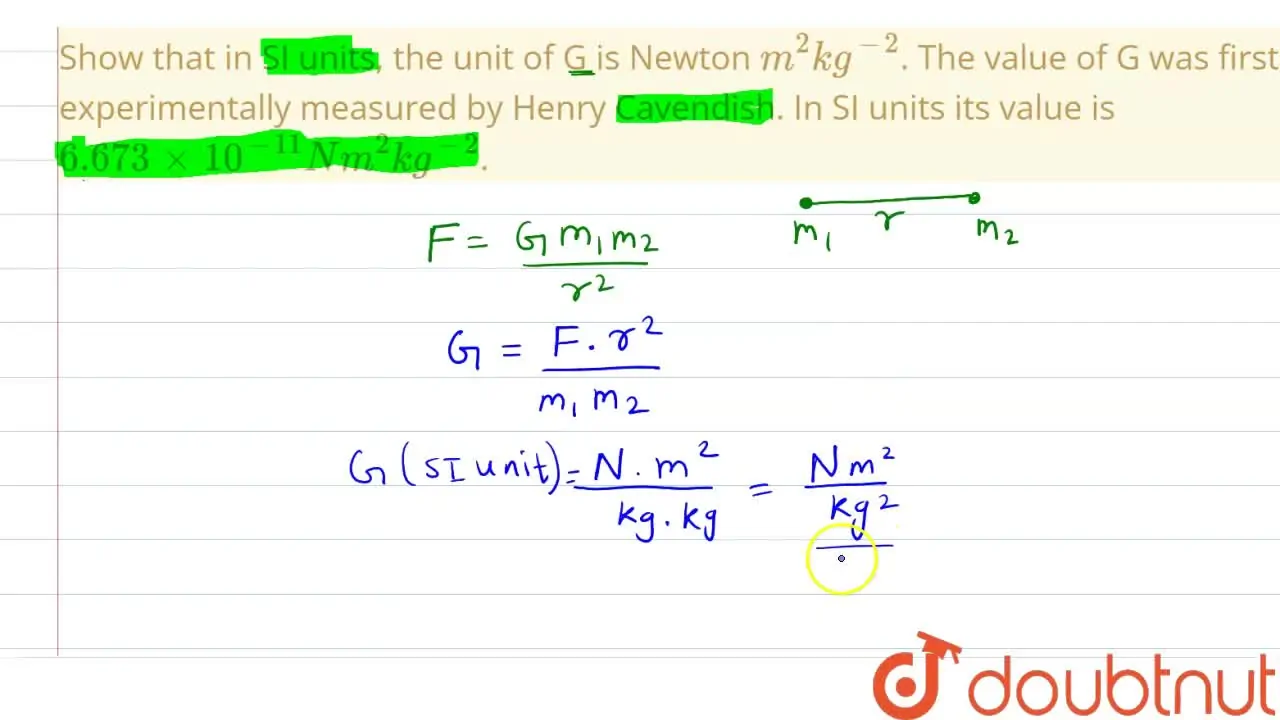 Show that in SI units, the unit of G is Newton m²kg⁻². The value of G was first
experimentally measured by Henry Cavendish. In SI units its value is
6.673 × 10⁻¹¹Nm²kg⁻².
m₁ r m₂
F = G m₁ m₂ / r²
G = F · r² / m₁ m₂
G (SI unit) = N · m² / kg · kg = N m² / kg²
doubtnut